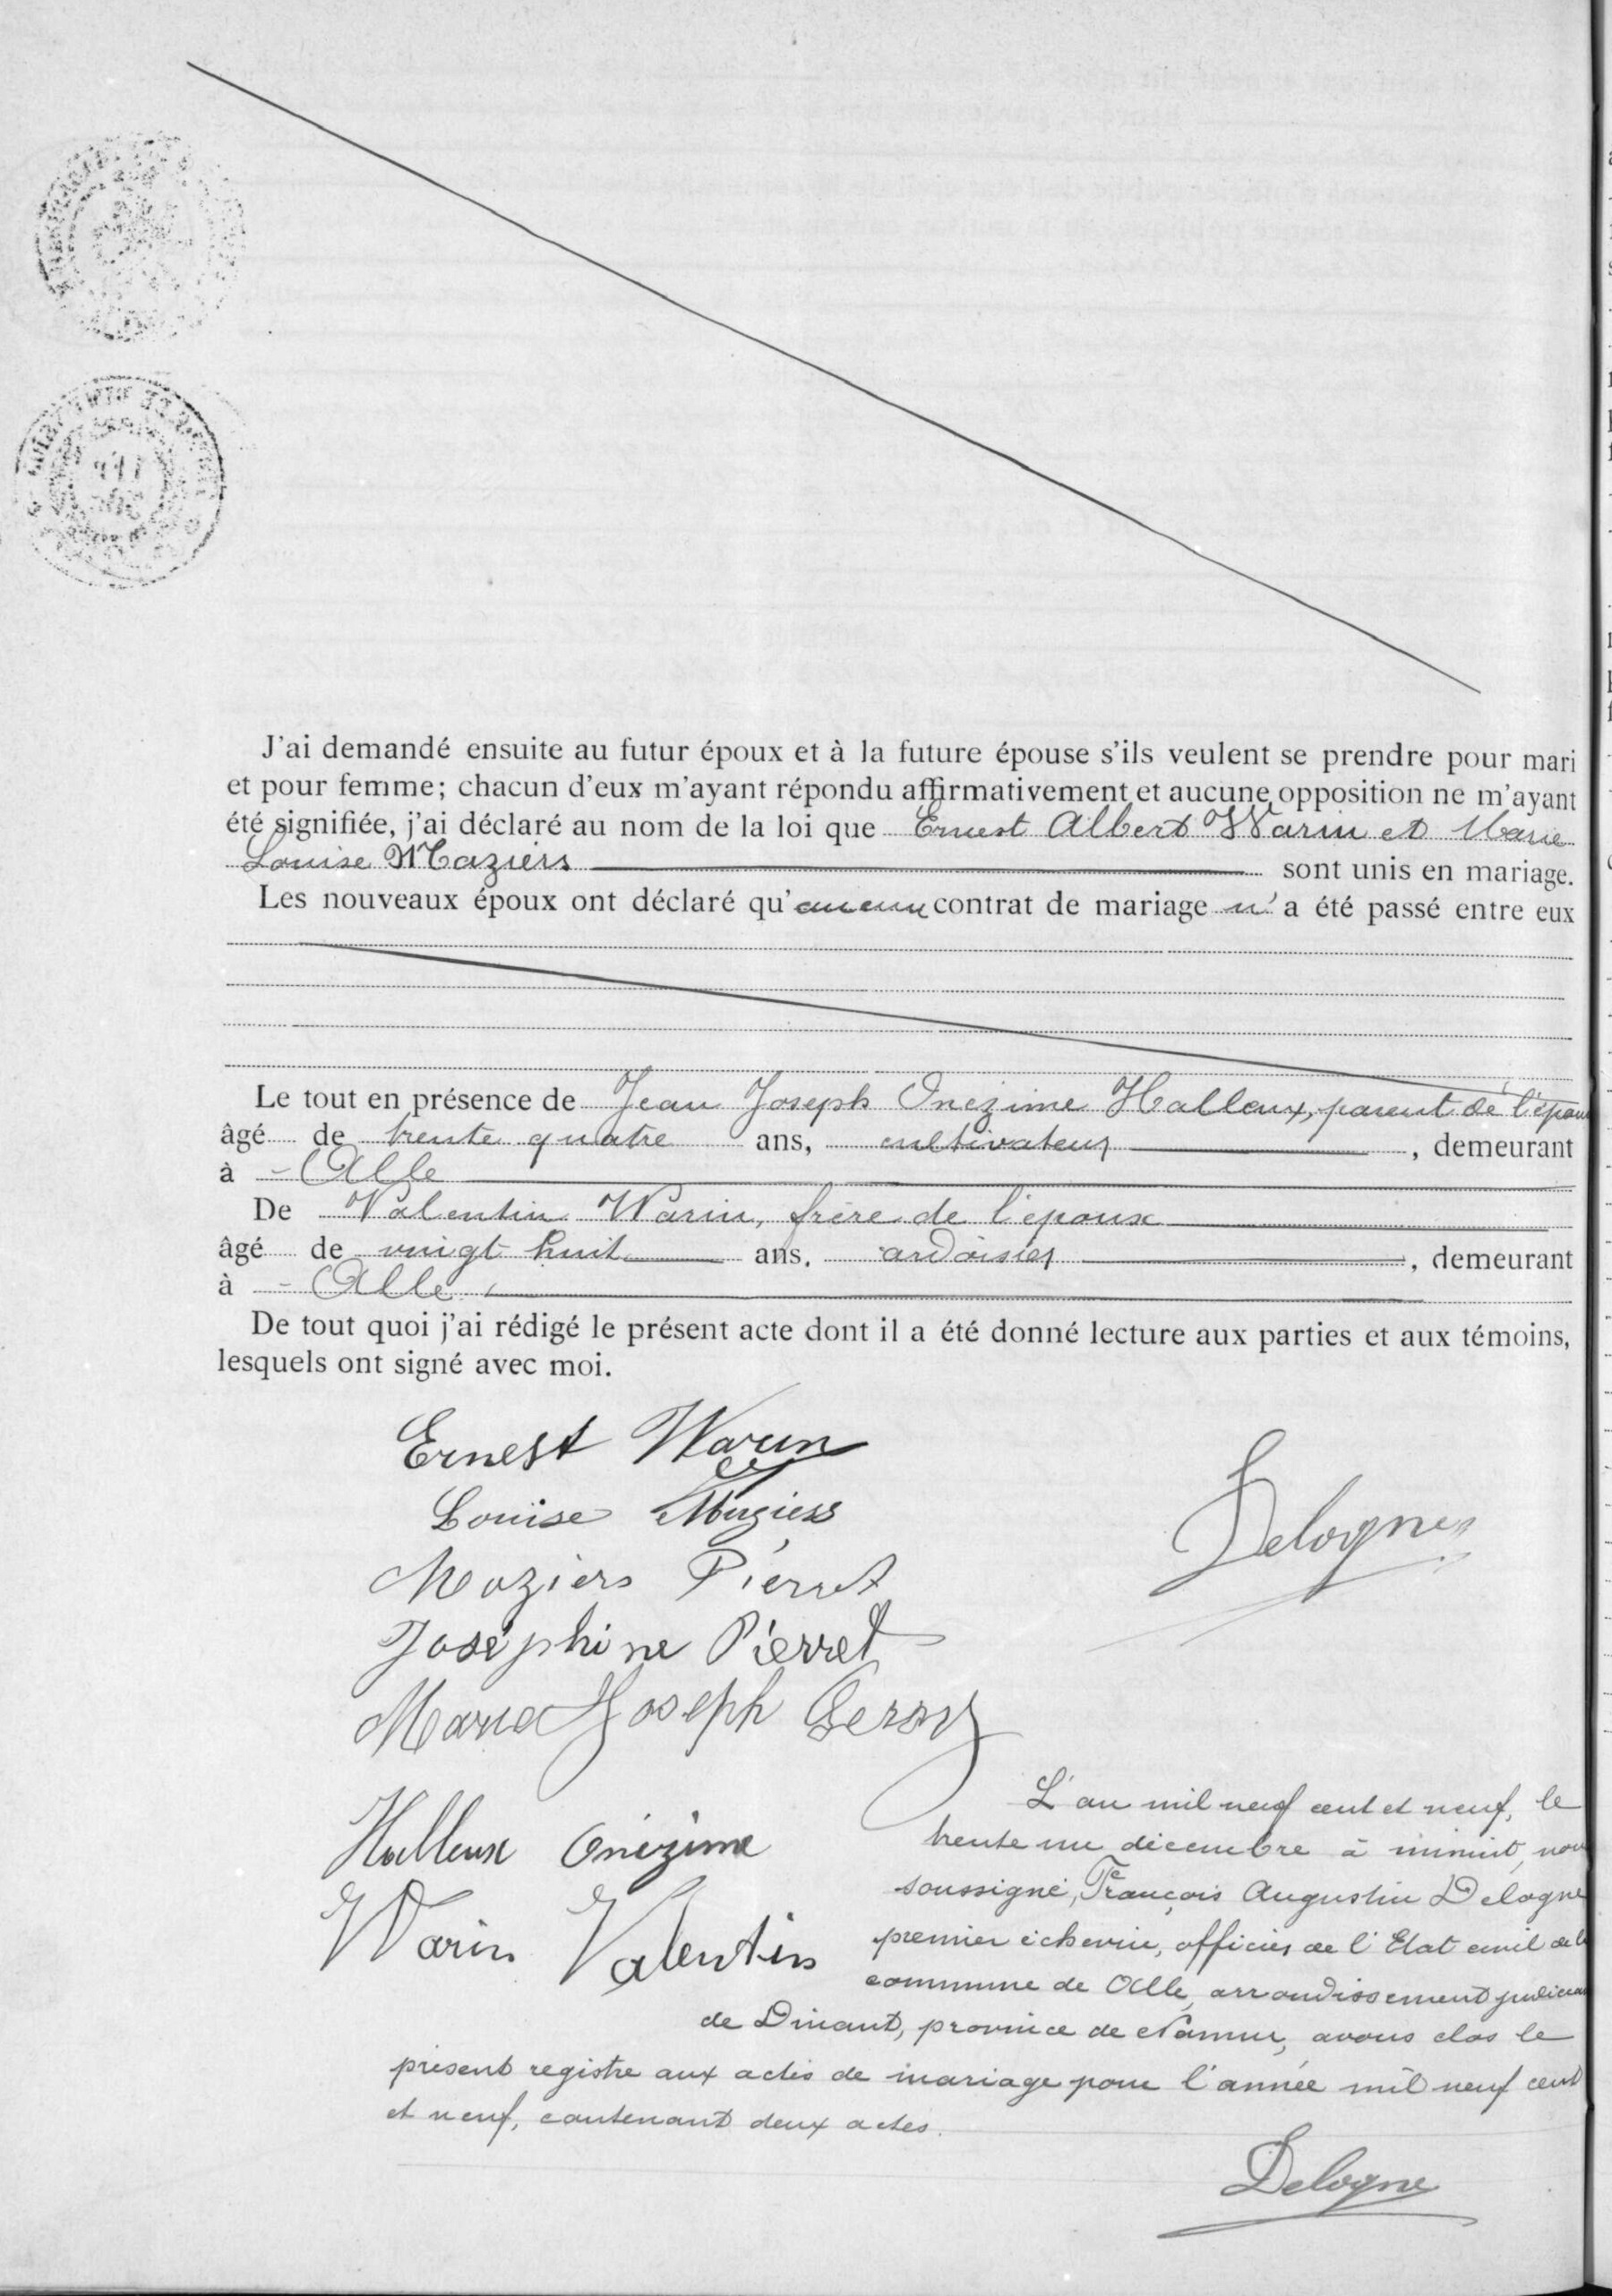 J'ai demandé ensuite au futur époux et à la future épouse s'ils veulent se prendre pour mari
et pour femme; chacun d'eux m'ayant répondu affirmativement et aucune opposition ne m'ayant
été signifiée, j'ai déclaré au nom de la loi que Ernest Albert Warin et Marie
Louise Maziers sont unis en mariage.
Les nouveaux époux ont déclaré qu'aucun contrat de mariage n'a été passé entre eux
Le tout en présence de Jean Joseph Onézime Halleux, parent de l'épou
âgé de trente quatre ans, cultivateur, demeurant
à Alle
De Valentin Warin, frère de l'époux
âgé de vingt huit ans, ardoisier, demeurant
à Alle
De tout quoi j'ai rédigé le présent acte dont il a été donné lecture aux parties et aux témoins,
lesquels ont signé avec moi.
Ernest Warin
Louise Maziers
Delogne
Maziers Pierret
Joséphine Pierret
Marie Joseph
Halleux Onézime
Warin Valentin
L'an mil neuf cent et neuf, le
trente un décembre à minuit, nous
soussigné, François Augustin Delogne
premier échevin, officier de l'Etat civil de la
commune de Alle, arrondissement judiciaire
de Dinant, province de Namur, avons clos le
présent registre aux actes de mariage pour l'année mil neuf cent
et neuf, contenant deux actes.
Delogne